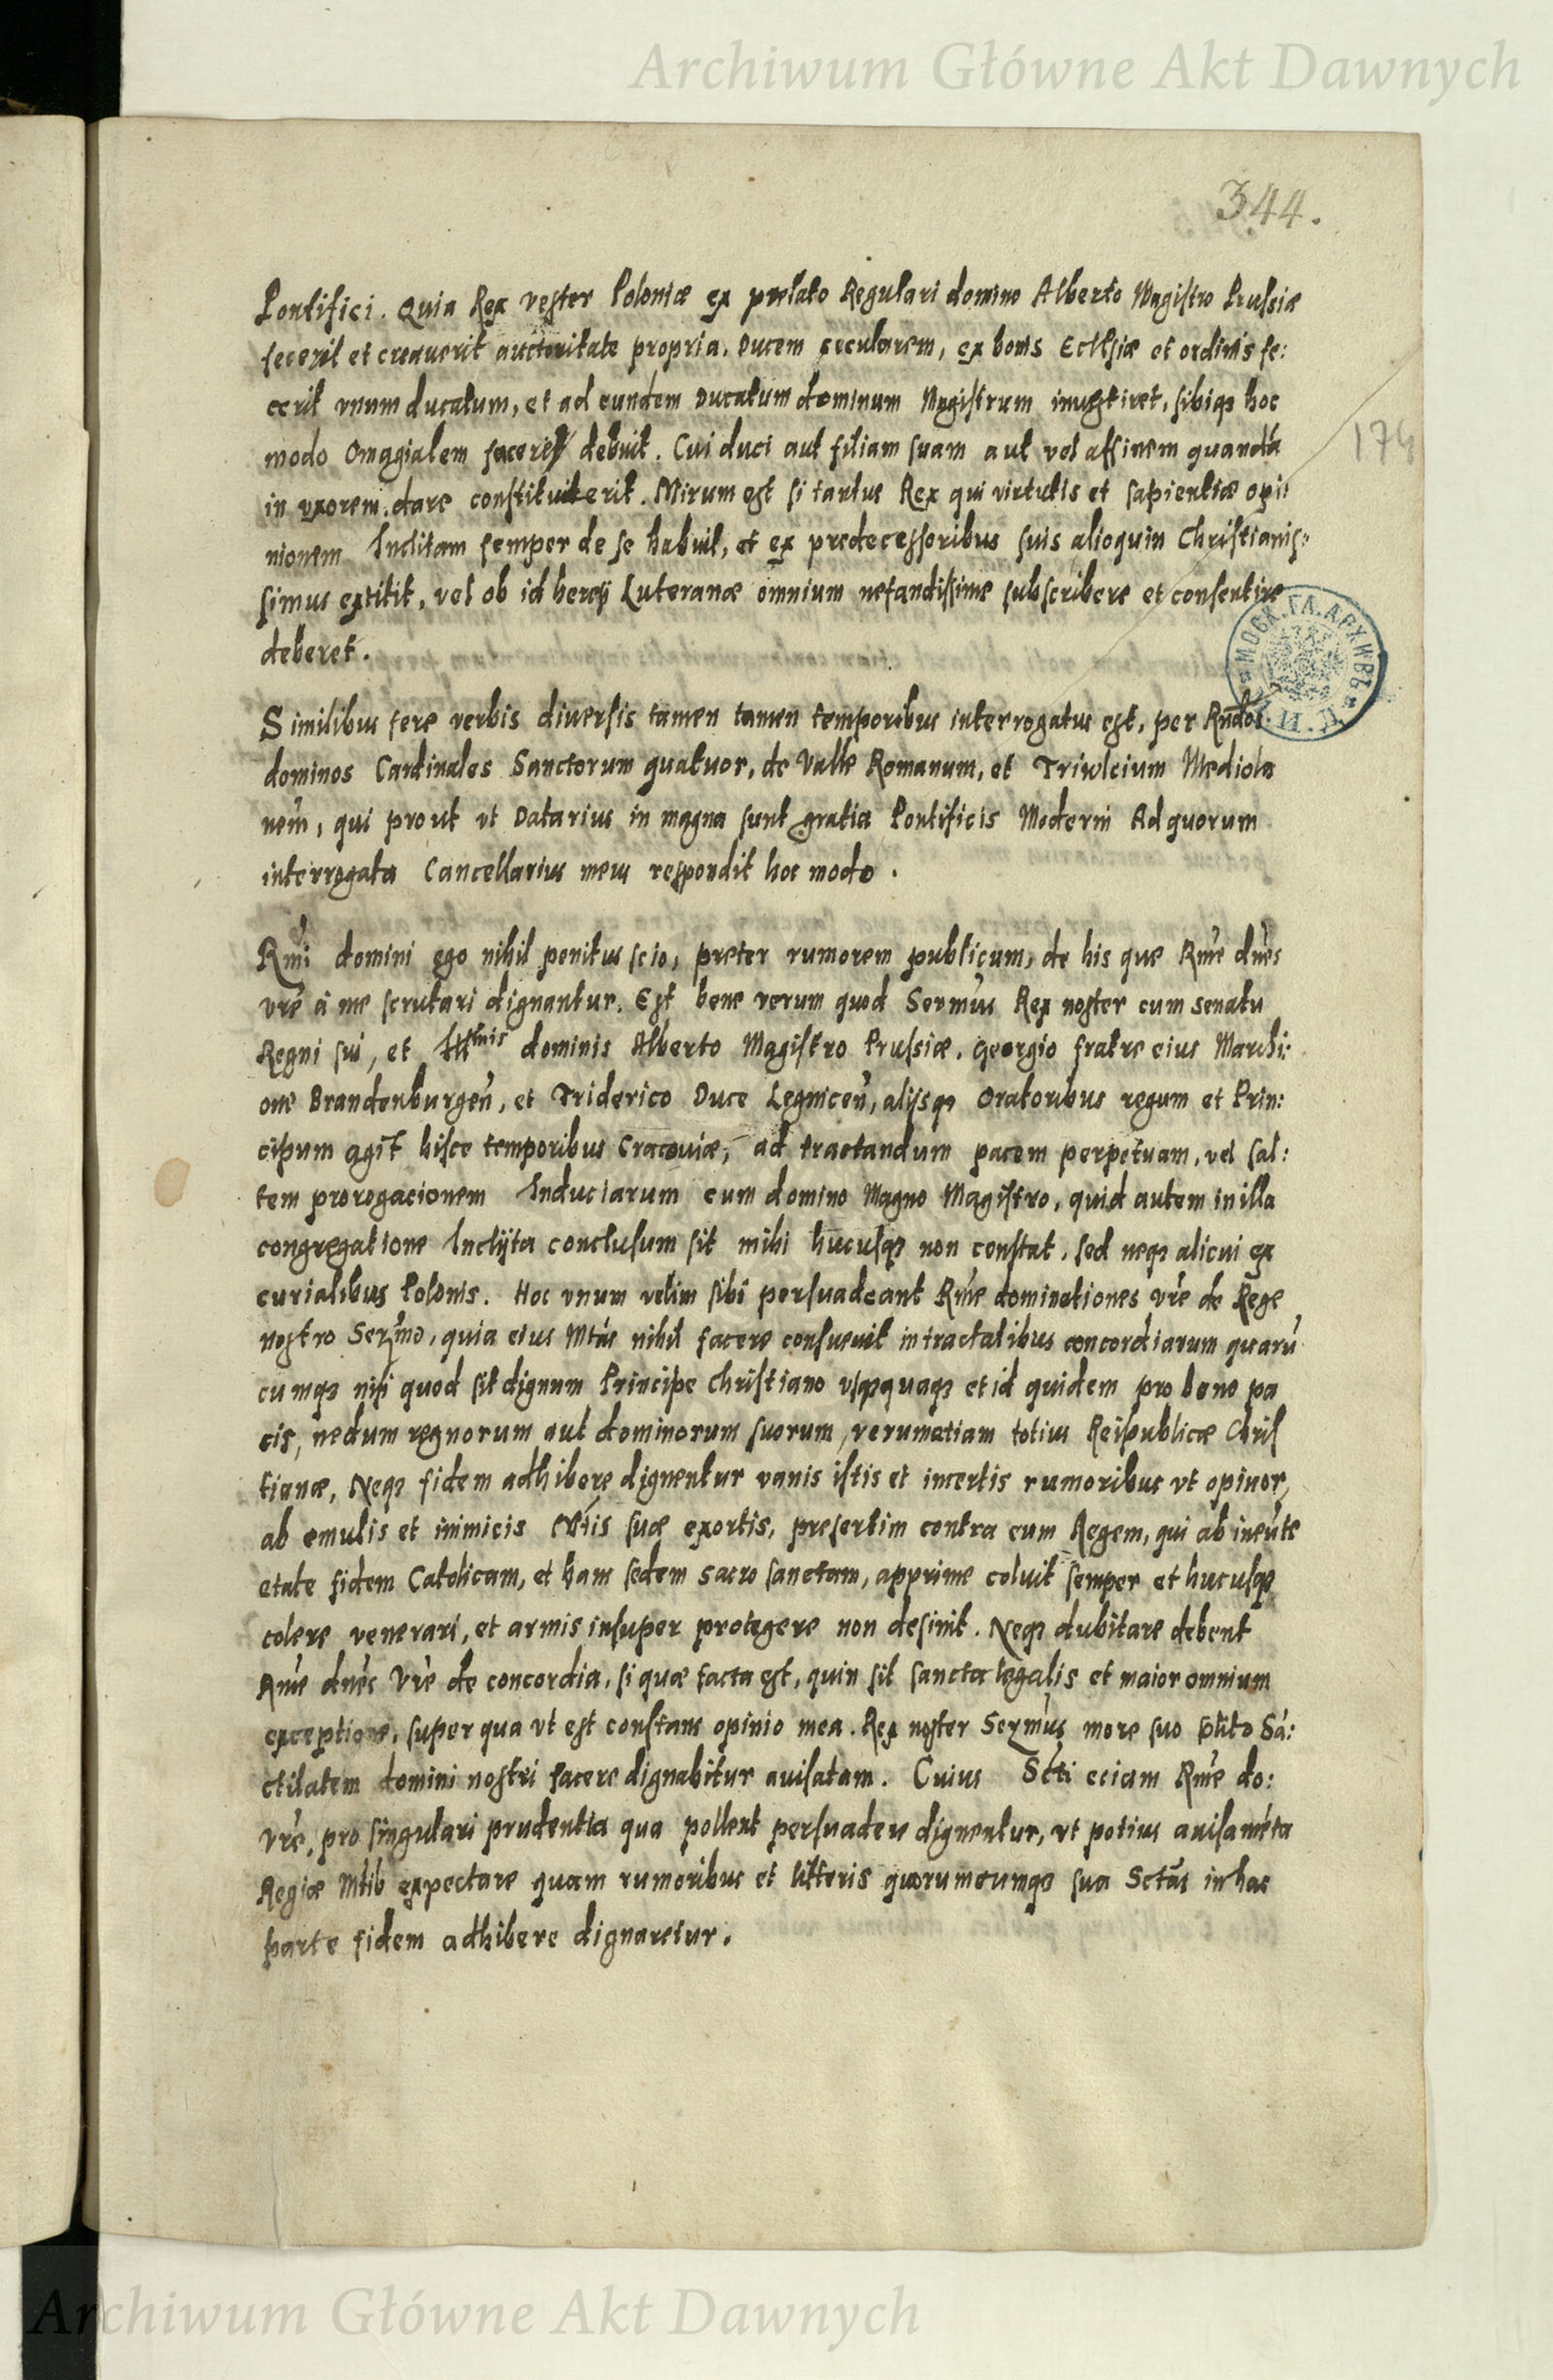 Archiwum Główne Akt Dawnych
344.
174
Pontifici. Quia Rex vester Poloniæ ex prelato Regulari domino Alberto Magistro Prussiæ
fecerit et creauerit auctoritate propria, Ducem secularem, ex bonis Ecclsiæ et ordinis fe:
cerit vnum ducatum, et ad eundem Ducatum dominum Magistrum inuestiret, sibiqȝ hoc
modo Omagialem facere debuit. Cui duci aut filiam suam aut vel affinem quandã
in vxorem dare constituerit. Mirum est si tantus Rex qui virtutis et sapientiæ opi:
nionem Inclitam semper de se habuit, et ex predecessoribus suis alioquin Christianis:
simus extitit, vel ob id heresi Luteranæ omnium nefandissime subscribere et consentire
deberet.
МОСК. ГЛ. АРХИВЪ
Similibus fere verbis diuersis tamen tamen temporibus interrogatus est, per Rndos
dominos Cardinales Sanctorum quatuor, de Valle Romanum, et Triulcium Mediola
nem̃, qui prout vt Datarius in magna sunt gratia Pontificis Moderni Ad quorum
interrogata Cancellarius meus respondit hoc modo.
Rmi domini ego nihil penitus scio, preter rumorem publicum, de his que Rme dnes
vre à me scrutari dignantur. Est bene verum quod Sermus Rex noster cum senatu
Regni sui, et Illmis dominis Alberto Magistro Prussiæ. Georgio fratre eius Marchi:
one Brandenburgeñ, et Friderico Duce Legniceñ, alijsqȝ Oratoribus regum et Prin:
cipum agit hisce temporibus Cracouiæ, ad tractandum pacem perpetuam, vel sal:
tem prorogacionem Induciarum cum domino Magno Magistro, quid autem in illa
congregatione Inclyta conclusum sit mihi hucusqȝ non constat, sed neqȝ alicui ex
curialibus Polonis. Hoc vnum velim sibi persuadeant Rme dominationes vre de Rege
nostro Sermo, quia eius Mtas nihil facere consueuit in tractatibus concordiarum quarũ
cumqȝ nisi quod sit dignum Principe Christiano vsqȝquaqȝ et id quidem pro bono pa
cis, nedum regnorum aut dominorum suorum, verumetiam totius Reipublicæ Chris
tianæ, Neqȝ fidem adhibere dignentur vanis istis et incertis rumoribus vt opinor,
ab emulis et inimicis Mtis suæ exortis, presertim contra eum Regem, qui ab ineũte
etate fidem Catolicam, et hanc sedem sacro sanctam, apprime coluit semper et hucusqȝ
colere venerari, et armis insuper protegere non desinit. Neqȝ dubitare debent
Rme dnes Vre de concordia, si quæ facta est, quin sit sancta legalis et maior omnium
exceptione, super qua vt est constans opinio mea. Rex noster Sermus more suo Sã:
ctitatem domini nostri facere dignabitur auisatam. Cuius Scti eciam Rme do:
vre, pro singulari prudentia qua pollent persuadere dignentur, vt potius auisamẽta
Regiæ Mtis expectare quam rumoribus et litteris quorumcumqȝ sua Sctas in hac
parte fidem adhibere dignaretur.
Archiwum Główne Akt Dawnych